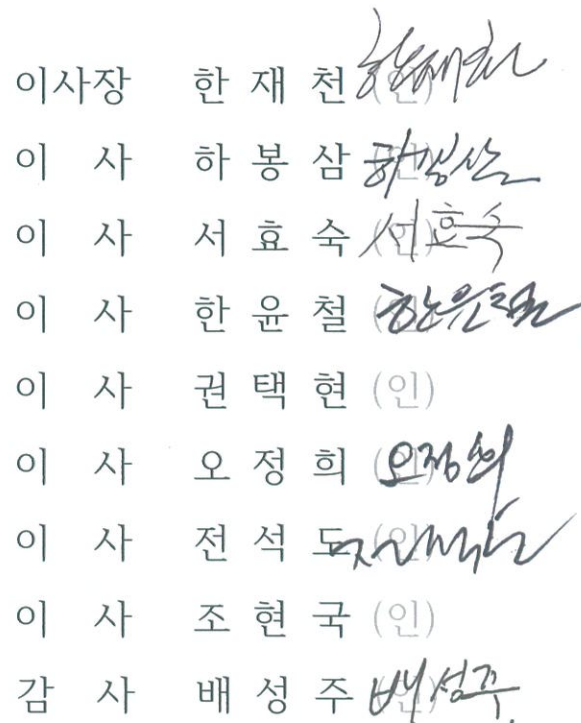 이사장 한 재 천 (인) 한재천
이 사 하 봉 삼 (인) 하봉삼
이 사 서 효 숙 (인) 서효숙
이 사 한 윤 철 (인) 한윤철
이 사 권 택 현 (인)
이 사 오 정 희 (인) 오정희
이 사 전 석 도 (인) 전석도
이 사 조 현 국 (인)
감 사 배 성 주 (인) 배성주